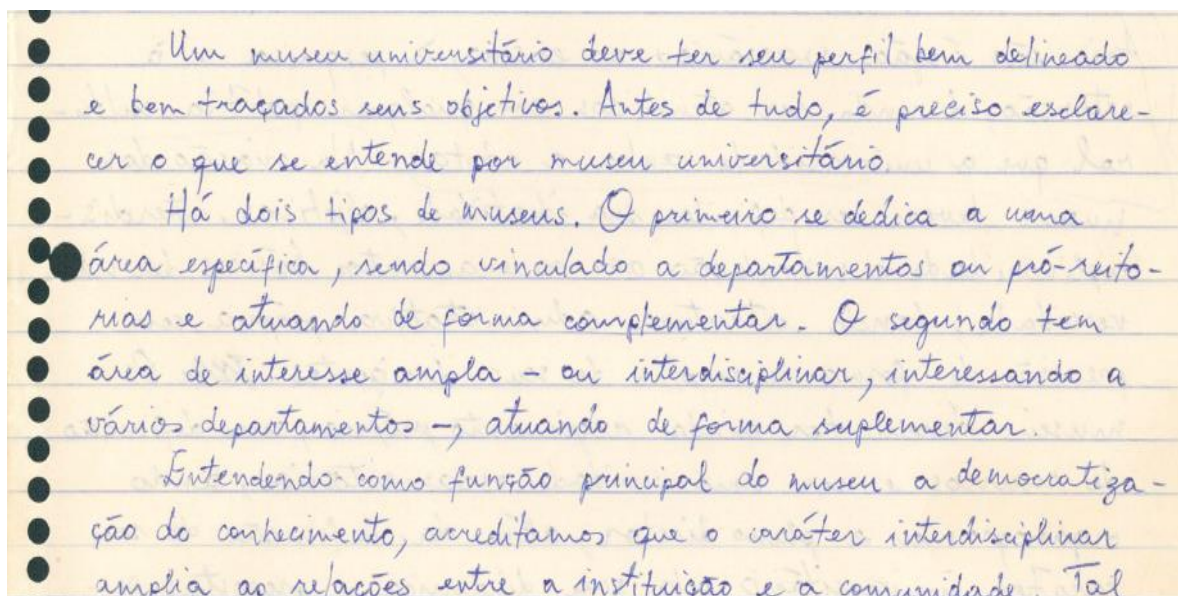 Um museu universitário deve ter seu perfil bem delineado
e bem traçados seus objetivos. Antes de tudo, é preciso esclare-
cer o que se entende por museu universitário.
Há dois tipos de museus. O primeiro se dedica a uma
área específica, sendo vinculado a departamentos ou pró-reito-
rias e atuando de forma complementar. O segundo tem
área de interesse ampla – ou interdisciplinar, interessando a
vários departamentos –, atuando de forma suplementar.
Entendendo como função principal do museu a democratiza-
ção do conhecimento, acreditamos que o caráter interdisciplinar
amplia as relações entre a instituição e a comunidade. Tal